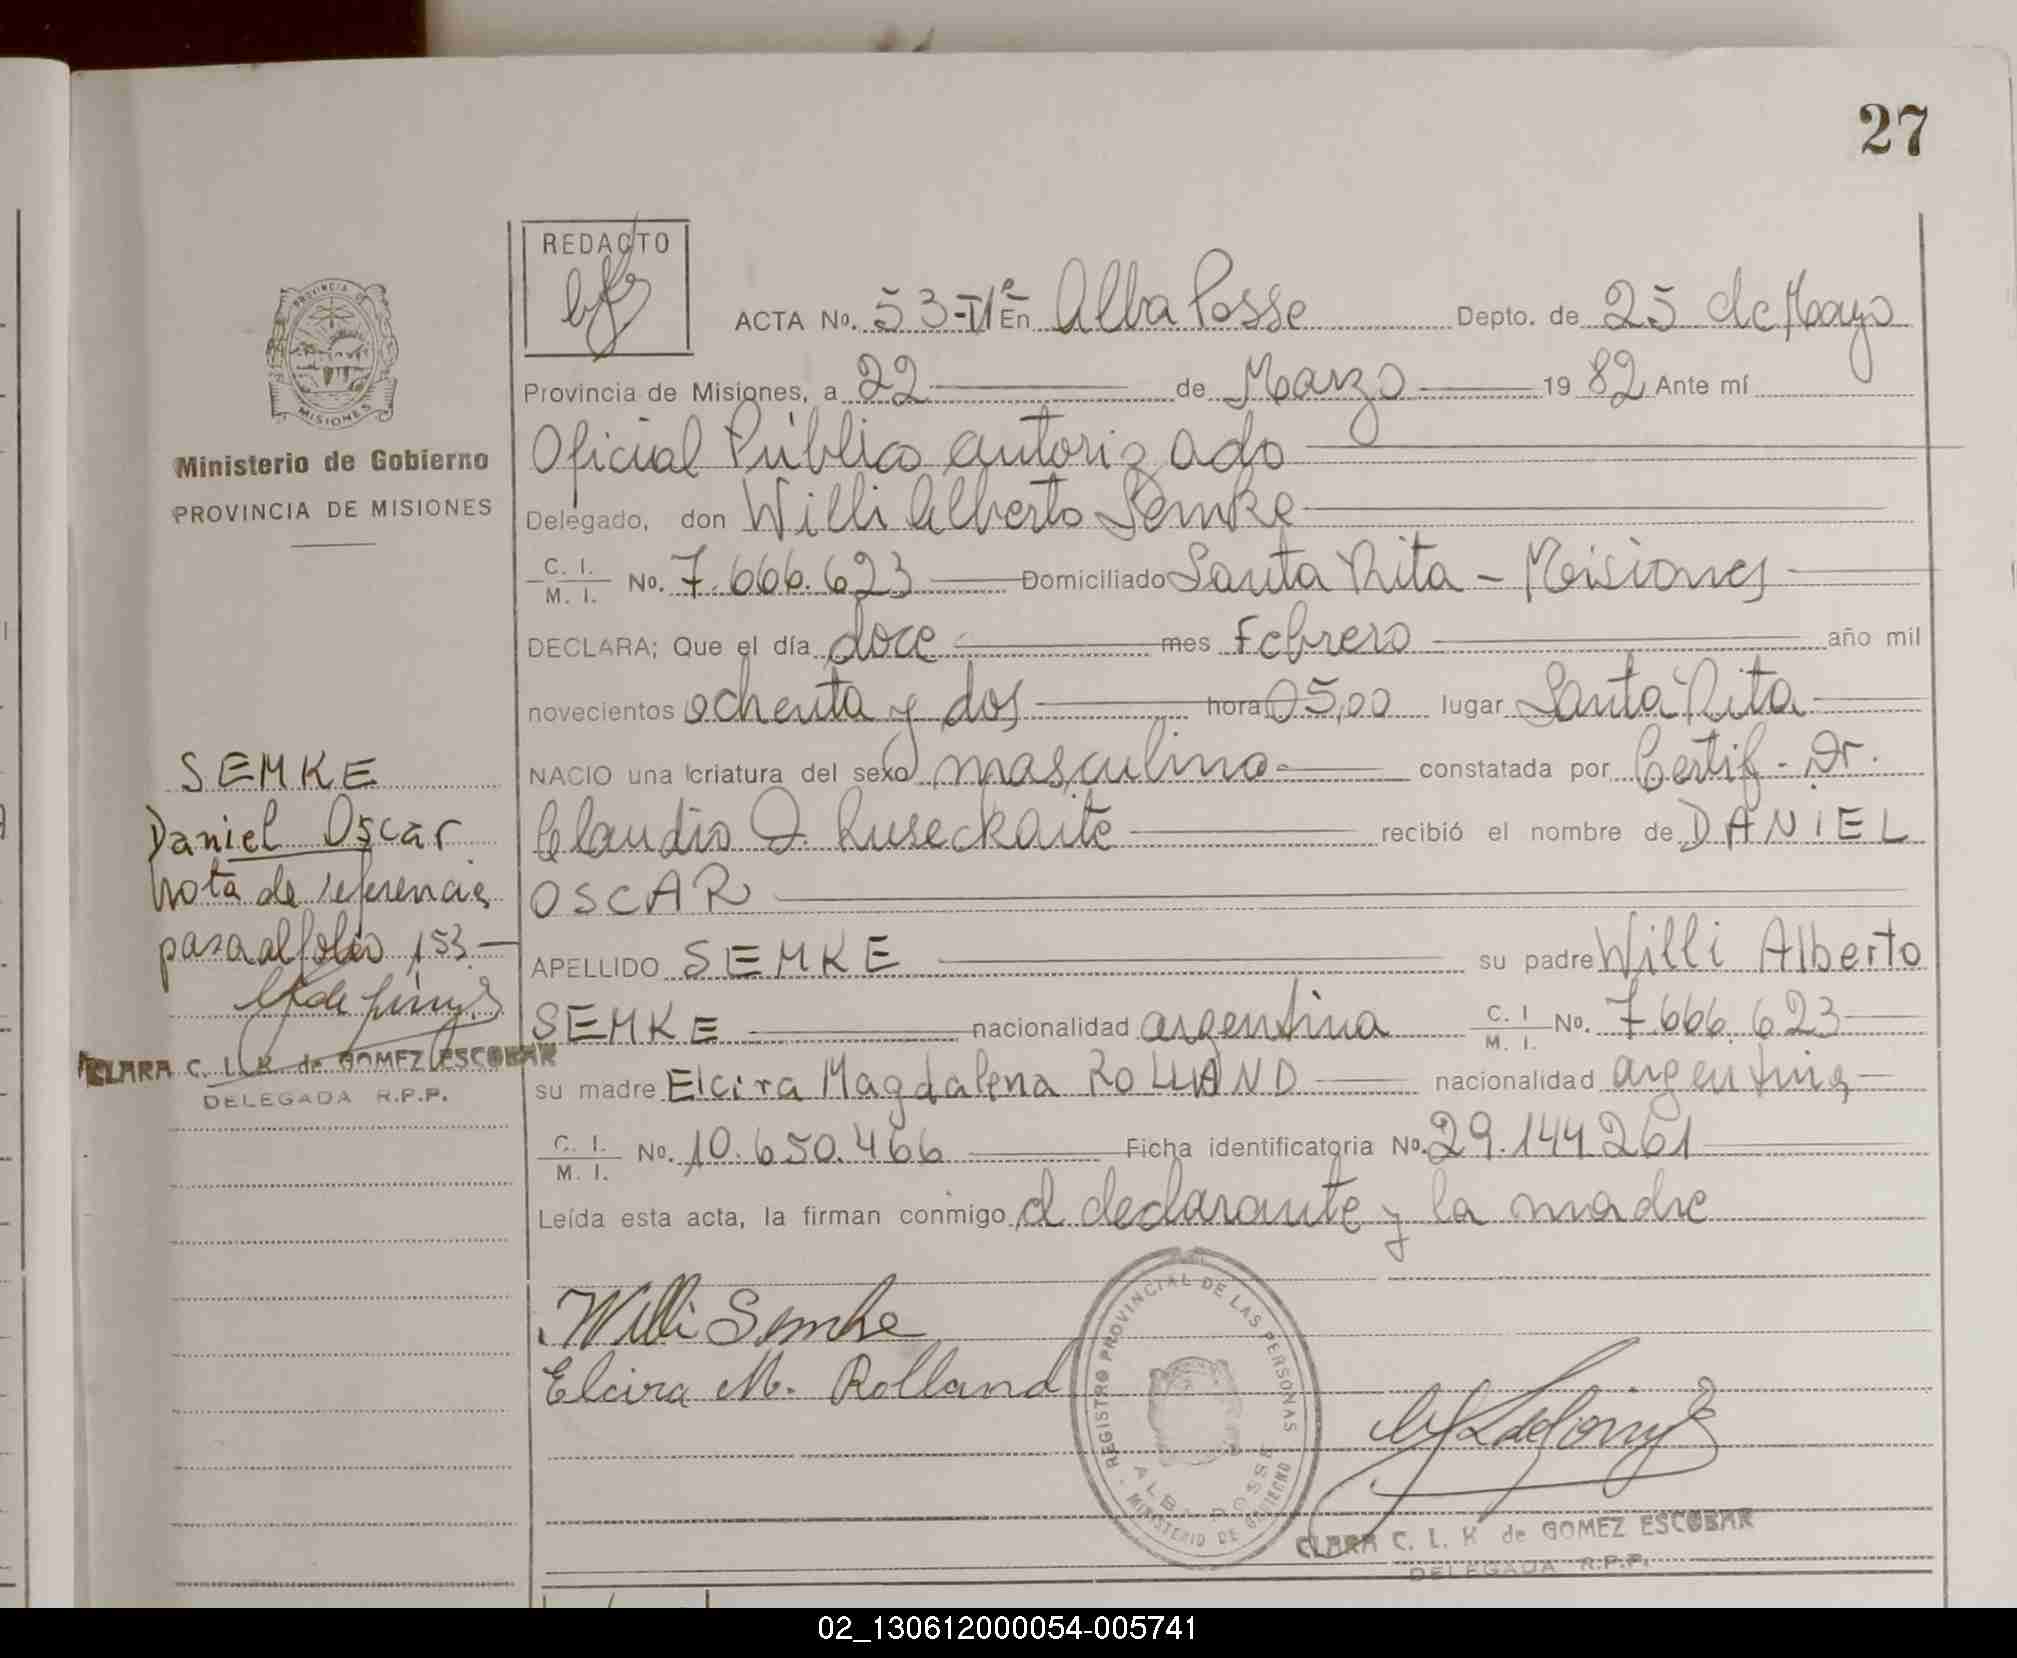 27
REDACTO
ACTA No. 53-Tº En Alba Posse Depto. de 25 de Mayo
PROVINCIA DE
MISIONES
Provincia de Misiones, a 22 de Marzo 19 82 Ante mí
Ministerio de Gobierno
PROVINCIA DE MISIONES
Oficial Público autorizado
Delegado, don Willi Alberto Semke
C. I.
M. I. No. 7.666.623 Domiciliado Santa Rita - Misiones
DECLARA; Que el día doce mes Febrero año mil
novecientos ochenta y dos hora 05,00 lugar Santa Rita
NACIO una criatura del sexo masculino constatada por Certif. Dr.
Claudio O. Ruseckaite recibió el nombre de DANIEL
OSCAR
APELLIDO SEMKE su padre Willi Alberto
SEMKE nacionalidad argentina C. I.
M. I. No. 7.666.623
su madre Elcira Magdalena ROLLAND nacionalidad argentina
C. I.
M. I. No. 10.650.466 Ficha identificatoria No. 29.144.261
Leída esta acta, la firman conmigo el declarante y la madre
SEMKE
Daniel Oscar
Nota de referencia
pasa al folio 153.-
CLARA C. L. K. de GOMEZ ESCOBAR
DELEGADA R.P.P.
Willi Semke
Elcira M. Rolland
REGISTRO PROVINCIAL DE LAS PERSONAS
ALBA POSSE
MINISTERIO DE GOBIERNO
CLARA C. L. K de GOMEZ ESCOBAR
DELEGADA R.P.P.
02_130612000054-005741